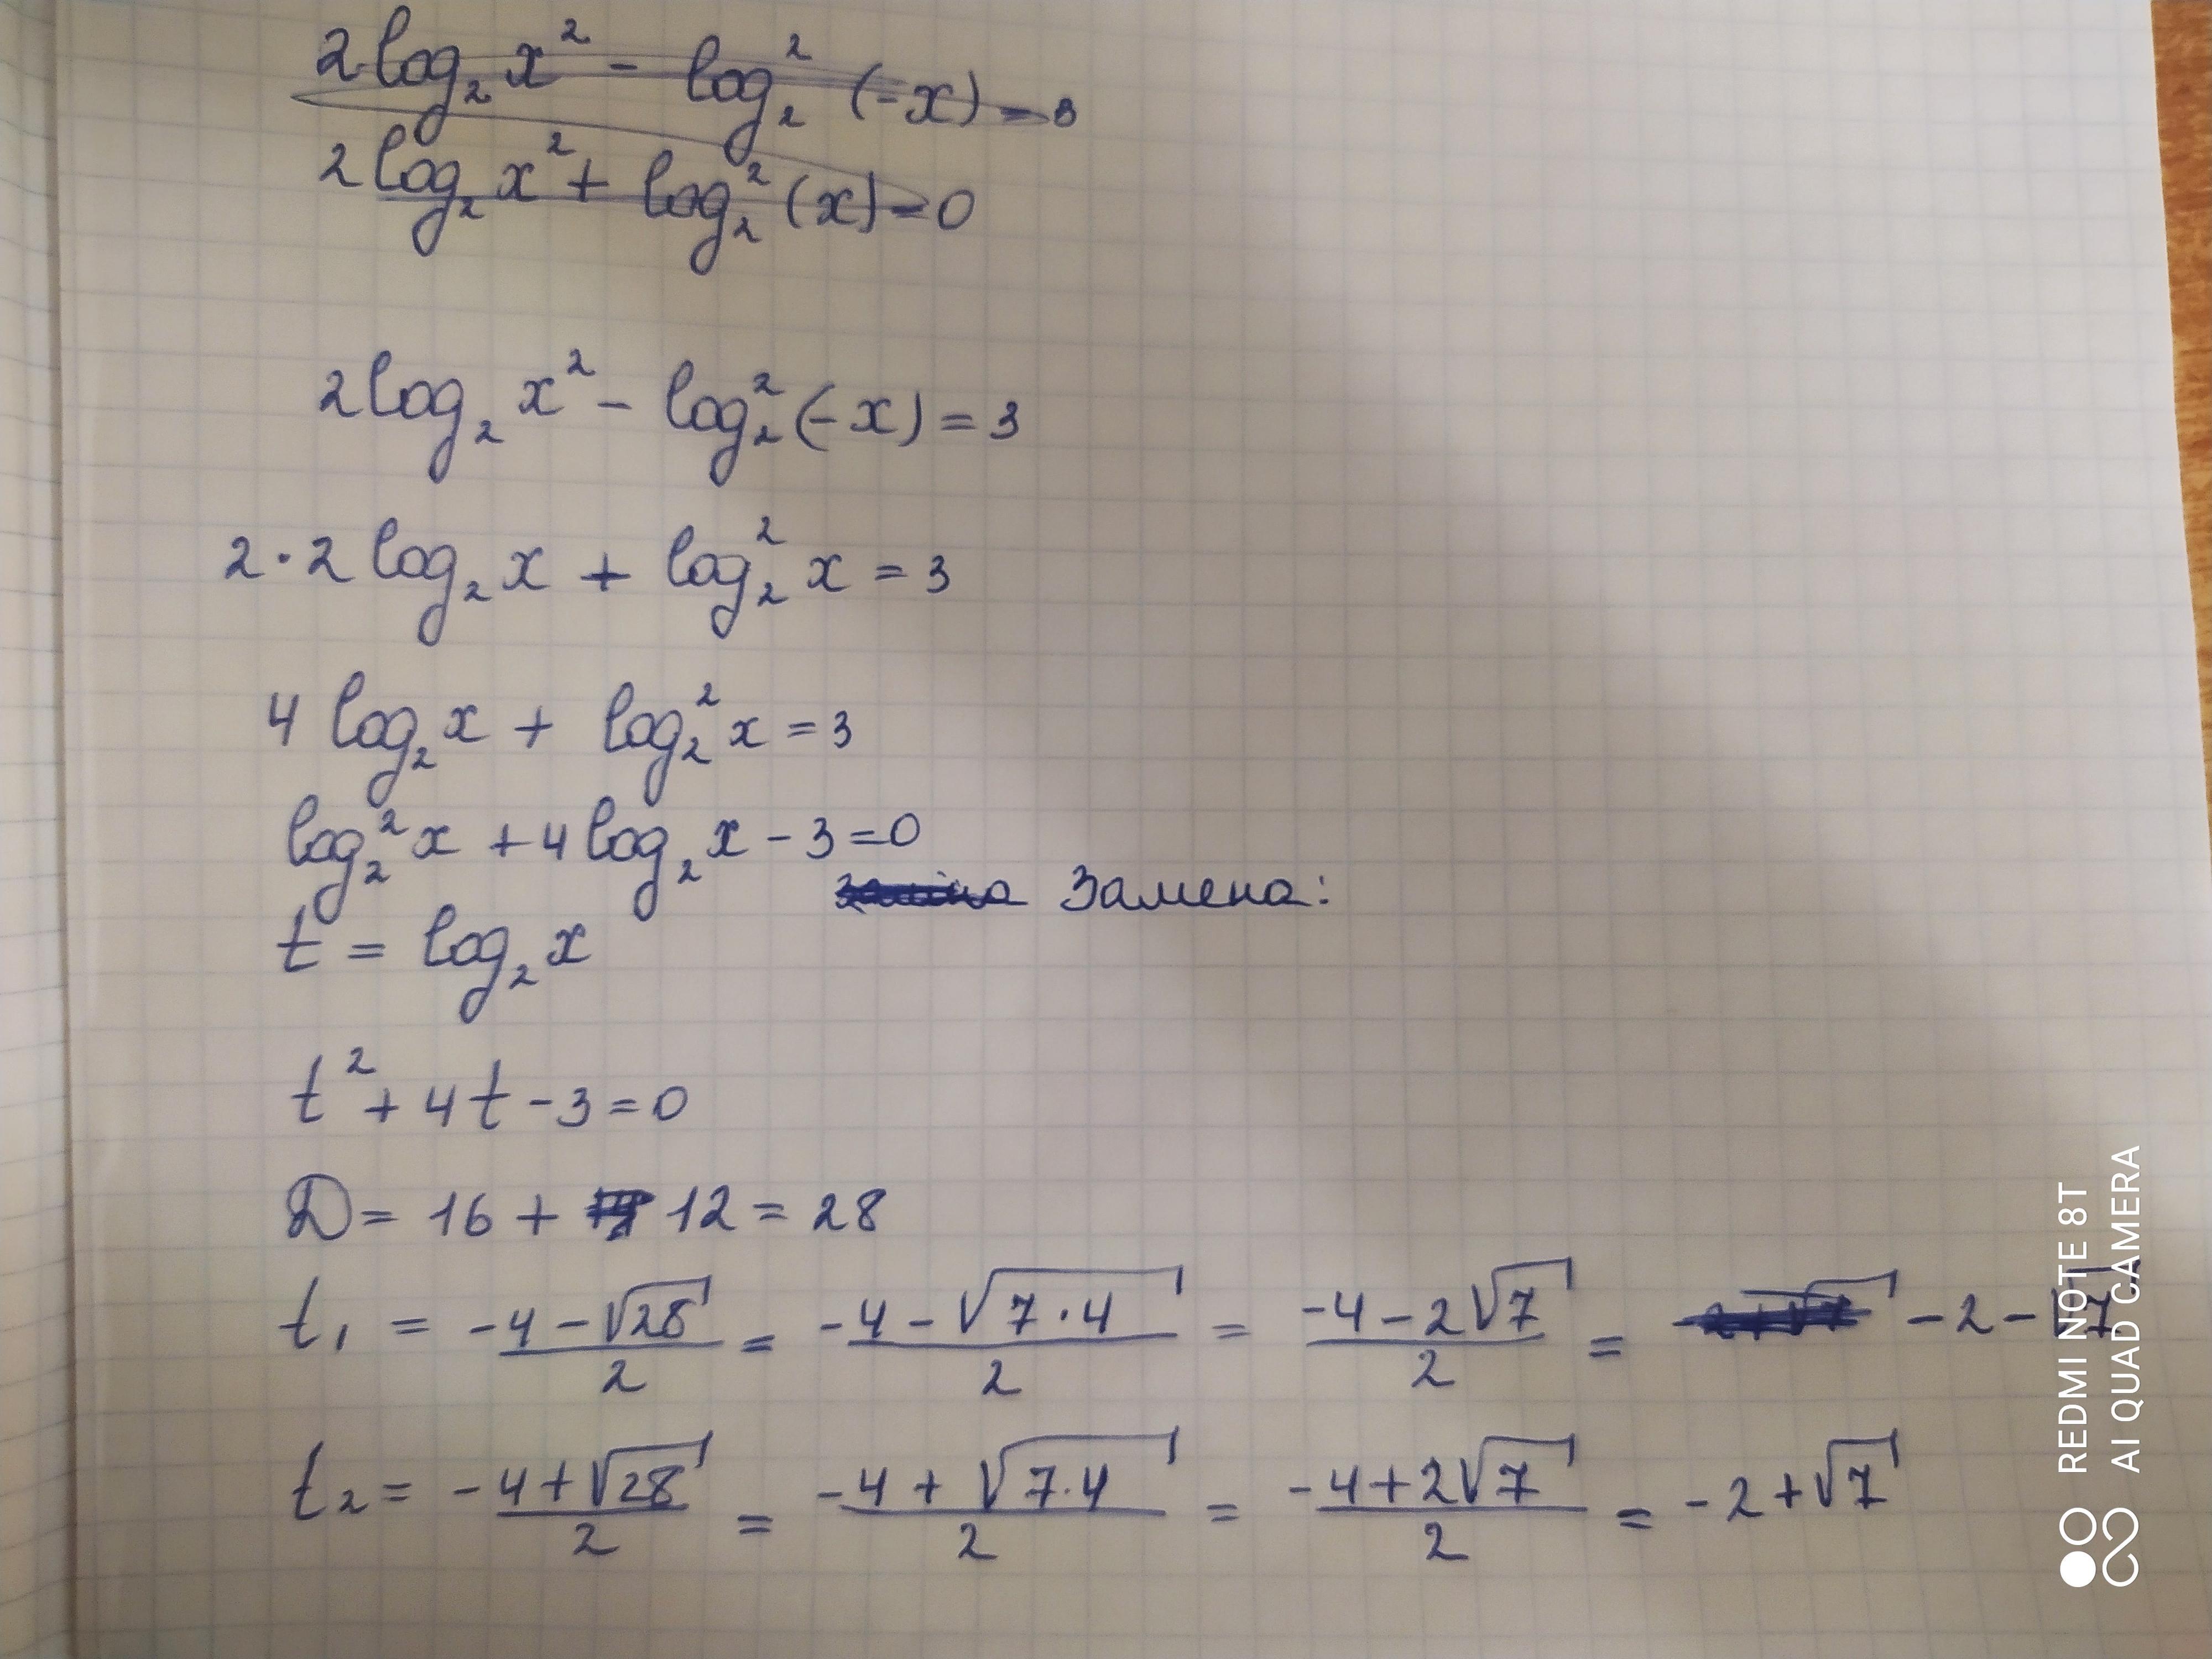 2log₂x² - log₂²(-x) = 3
2log₂x² + log₂²(x) = 0
2log₂x² - log₂²(-x) = 3
2·2log₂x + log₂²x = 3
4 log₂x + log₂²x = 3
log₂²x + 4log₂x - 3 = 0
Замена:
t = log₂x
t² + 4t - 3 = 0
D = 16 + 12 = 28
t₁ = (-4 - √28)/2 = (-4 - √(7·4))/2 = (-4 - 2√7)/2 = -2 - √7
t₂ = (-4 + √28)/2 = (-4 + √(7·4))/2 = (-4 + 2√7)/2 = -2 + √7
REDMI NOTE 8T
AI QUAD CAMERA